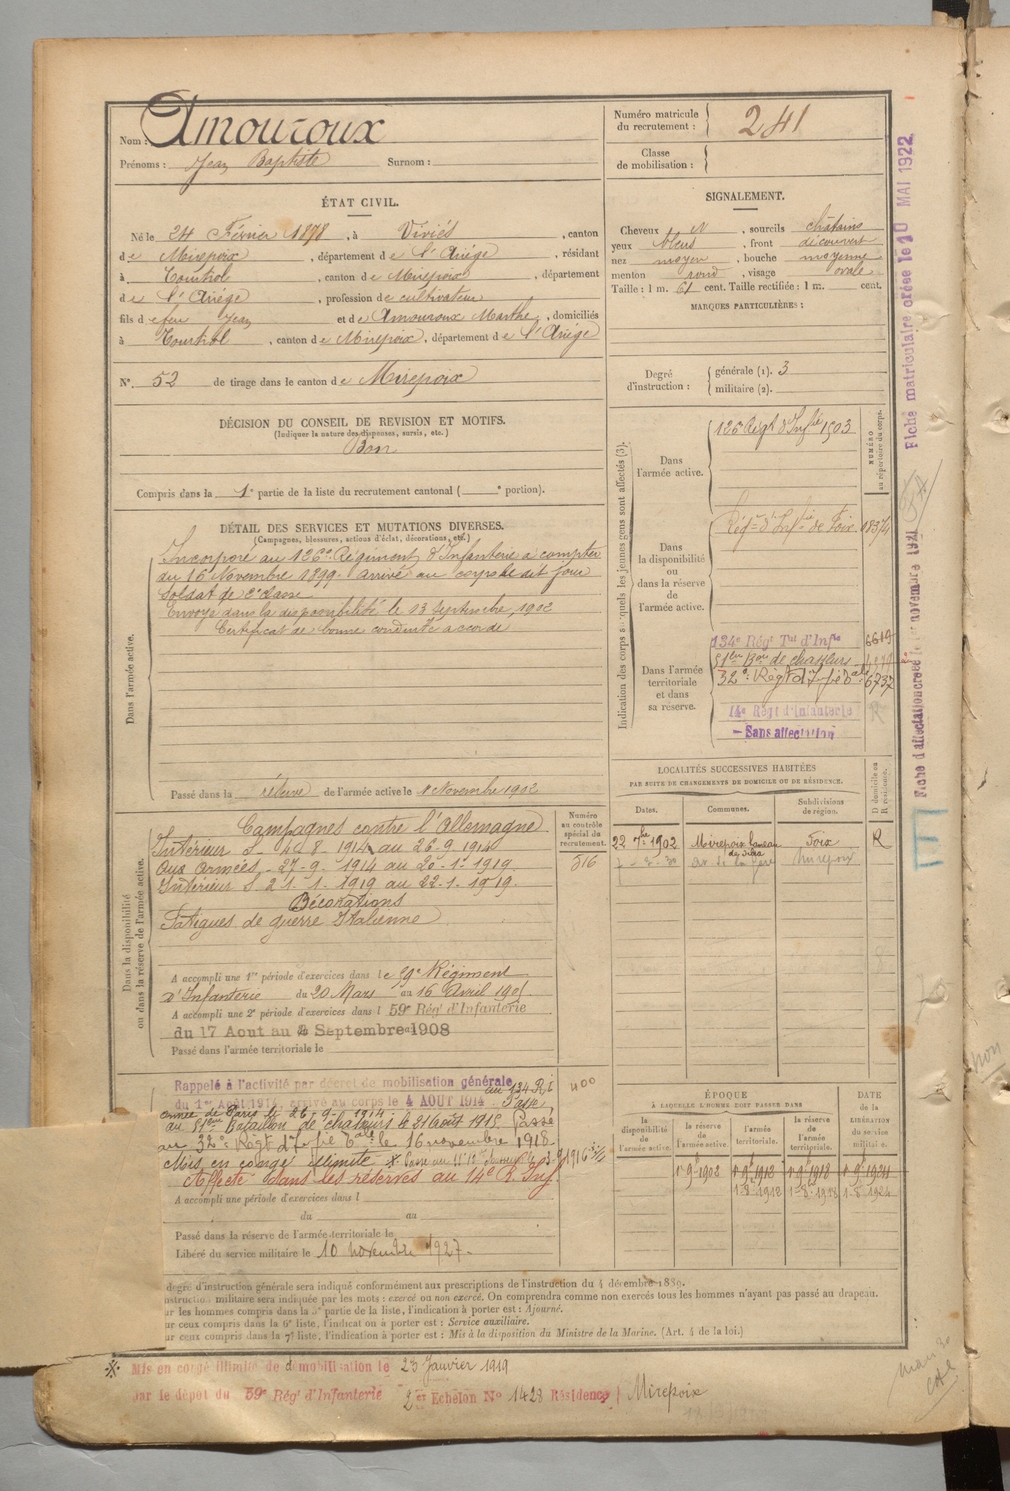 Nom : Amouroux
Prénoms : Jean Baptiste Surnom :
Numéro matricule du recrutement : 241
Classe de mobilisation :
ÉTAT CIVIL.
Né le 24 Février 1878, à Viviés, canton
de Mirepoix, département de l'Ariége, résidant
à Tourtrol, canton de Mirepoix, département
de l'Ariége, profession de cultivateur
fils de feu Jean et de Amouroux Marthe, domiciliés
à Tourtrol, canton de Mirepoix, département de l'Ariége
N° 52 de tirage dans le canton de Mirepoix
DÉCISION DU CONSEIL DE REVISION ET MOTIFS.
(Indiquer la nature des dispenses, sursis, etc.)
Bon
Compris dans la 1e partie de la liste du recrutement cantonal ( e portion).
SIGNALEMENT.
Cheveux N, sourcils châtains
yeux bleus, front découvert
nez moyen, bouche moyenne
menton rond, visage ovale
Taille : 1 m. 61 cent. Taille rectifiée : 1 m. cent.
MARQUES PARTICULIÈRES :
Degré d'instruction : générale (1). 3
militaire (2).
DÉTAIL DES SERVICES ET MUTATIONS DIVERSES.
(Campagnes, blessures, actions d'éclat, décorations, etc.)
Dans l'armée active.
Incorporé au 126e Régiment d'Infanterie à compter
du 16 Novembre 1899. arrivé au corps le dit jour
soldat de 2e classe
Envoyé dans la disponibilité le 13 Septembre 1902
Certificat de bonne conduite accordé
Passé dans la réserve de l'armée active le 1 Novembre 1902
Indication des corps auxquels les jeunes gens sont affectés (3).
NUMÉRO au répertoire du corps.
Dans l'armée active.
126 Régt d'Infie 1503
Dans la disponibilité ou dans la réserve de l'armée active.
Régt d'Infie de Foix
Dans l'armée territoriale et dans sa réserve.
134e Régt Tal d'Infie 6619
51e Bon de chasseurs
32e Régt d'Infie 6737
14e Régt d'Infanterie
- Sans affectation
LOCALITÉS SUCCESSIVES HABITÉES
PAR SUITE DE CHANGEMENTS DE DOMICILE OU DE RÉSIDENCE.
Dates. Communes. Subdivisions de région. D domicile ou R résidence.
22 7bre 1902 Mirepoix Foix R
Mirepoix
Dans la disponibilité ou dans la réserve de l'armée active.
Numéro au contrôle spécial du recrutement.
516
Campagnes contre l'Allemagne
Intérieur S. 4-8-1914 au 26-9-1914
Aux Armées. 27-9-1914 au 20-1-1919
Intérieur S. 21-1-1919 au 22-1-1919.
Décorations
Fatigues de guerre Italienne
A accompli une 1re période d'exercices dans le 59e Régiment
d'Infanterie du 20 Mars au 16 Avril 1905
A accompli une 2e période d'exercices dans l 59e Régt d'Infanterie
du 17 Aout au Septembre 1908
Passé dans l'armée territoriale le
Rappelé à l'activité par décret de mobilisation générale
du 1er Août 1914, arrivé au corps le 4 AOUT 1914 au 134 RI 400
Passé
au 51eme Bataillon de chasseurs le 21 Août 1915. Passé
au 32e Régt d'Infie le 16 novembre 1918.
Mis en congé illimité
Affecté dans les réserves au 14e R. Inf.
A accompli une période d'exercices dans l
du au
Passé dans la réserve de l'armée territoriale le
Libéré du service militaire le 10 novembre 1927.
ÉPOQUE
À LAQUELLE L'HOMME DOIT PASSER DANS
la disponibilité de l'armée active. la réserve de l'armée active. l'armée territoriale. la réserve de l'armée territoriale. DATE de la LIBÉRATION du service militaire.
1er 9bre 1902 1er 9bre 1912 1er 9bre 1918 1er 9bre 1924
degré d'instruction générale sera indiqué conformément aux prescriptions de l'instruction du 4 décembre 1889.
instruction militaire sera indiquée par les mots : exercé ou non exercé. On comprendra comme non exercés tous les hommes n'ayant pas passé au drapeau.
ur les hommes compris dans la 5e partie de la liste, l'indication à porter est : Ajourné.
ur ceux compris dans la 6e liste, l'indication à porter est : Service auxiliaire.
ur ceux compris dans la 7e liste, l'indication à porter est : Mis à la disposition du Ministre de la Marine. (Art. 4 de la loi.)
Mis en congé illimité de démobilisation le 23 Janvier 1919
par le dépôt du 59e Régt d'Infanterie 2e Echelon N° 1428 Résidence Mirepoix
Fiche matriculaire créée le 10 MAI 1922
Fiche d'affectation créée le 1er novembre 1921
non